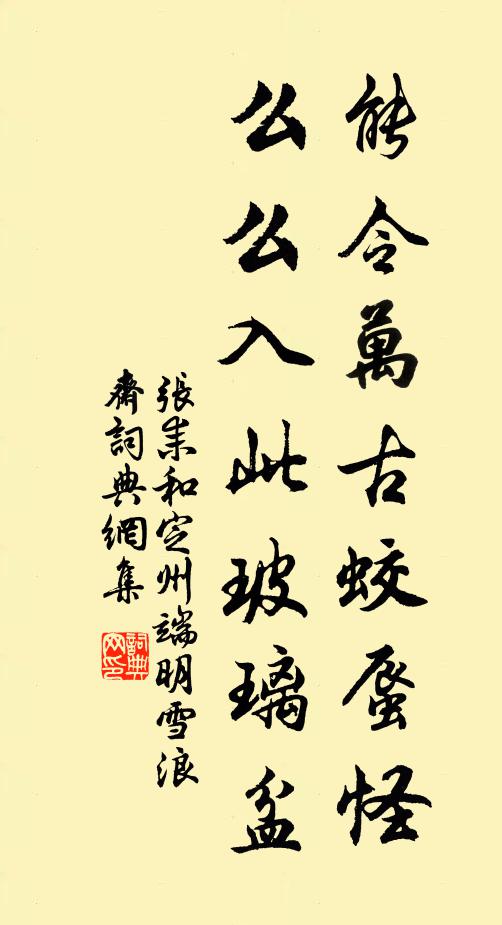 能令萬古蛟蜃怪
么么入此玻璃盆
張耒和定州端明雪浪
齋詞典網集
詞典網印